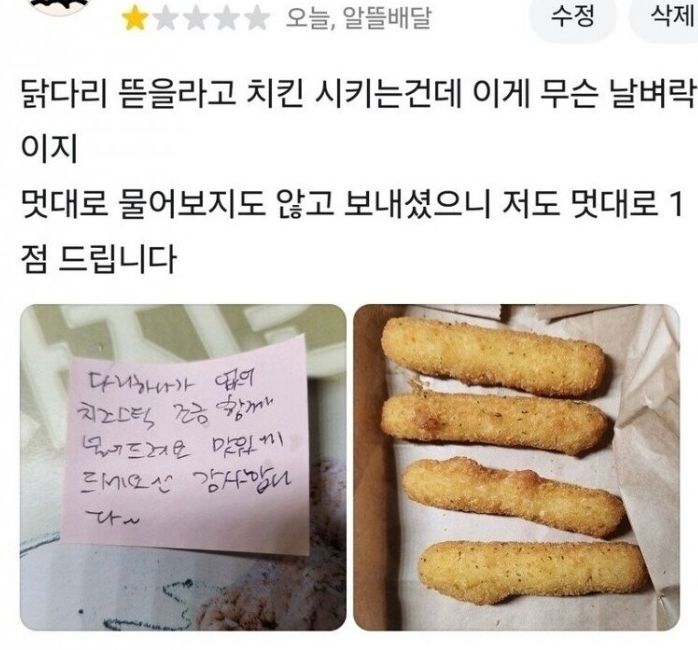 오늘, 알뜰배달
수정
삭제
닭다리 뜯을라고 치킨 시키는건데 이게 무슨 날벼락
이지
멋대로 물어보지도 않고 보내셨으니 저도 멋대로 1
점 드립니다
다리하나가 없어
치즈스틱 조금 함께
보내드려요 맛있게
드세요 감사합니
다~